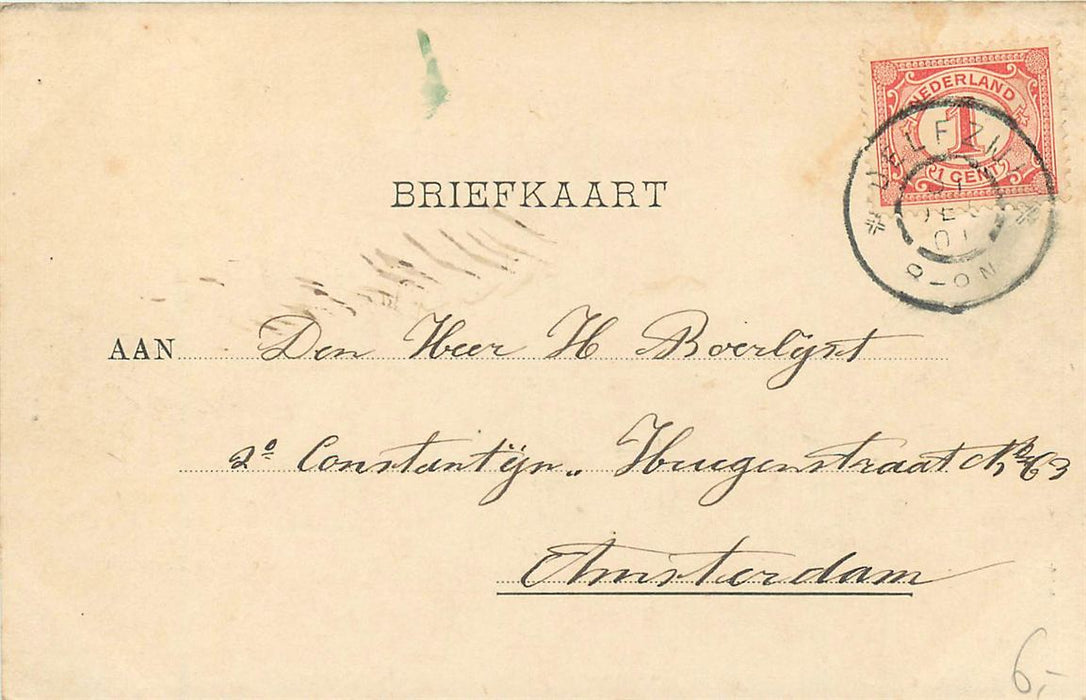 NEDERLAND
1
1 CENT
DELFZIJL
01
8-9 N
BRIEFKAART
AAN Den Heer H Boerlijst
2e Constantijn Huygenstraat No 63
Amsterdam
6,-